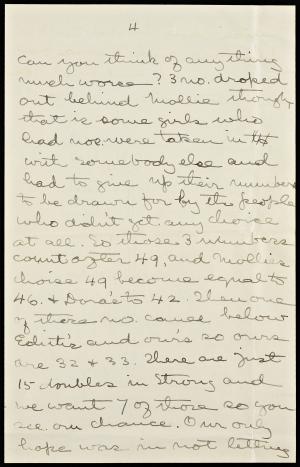 4
can you think of anything
much worse? 3 no. droped
out behind Mollie though
that is some girls who
had nos. were taken in
with somebody else and
had to give up their numbers
to be drawn for by the people
who didn't get any choice
at all. So those 3 numbers
count after 49, and Mollie's
choice 49 become equal to
46. & Dora's to 42. Then one
of these no. came below
Edith's and our's so ours
are 32 & 33. There are just
15 doubles in Strong and
we want 7 of those so you
see our chance. Our only
hope was in not letting